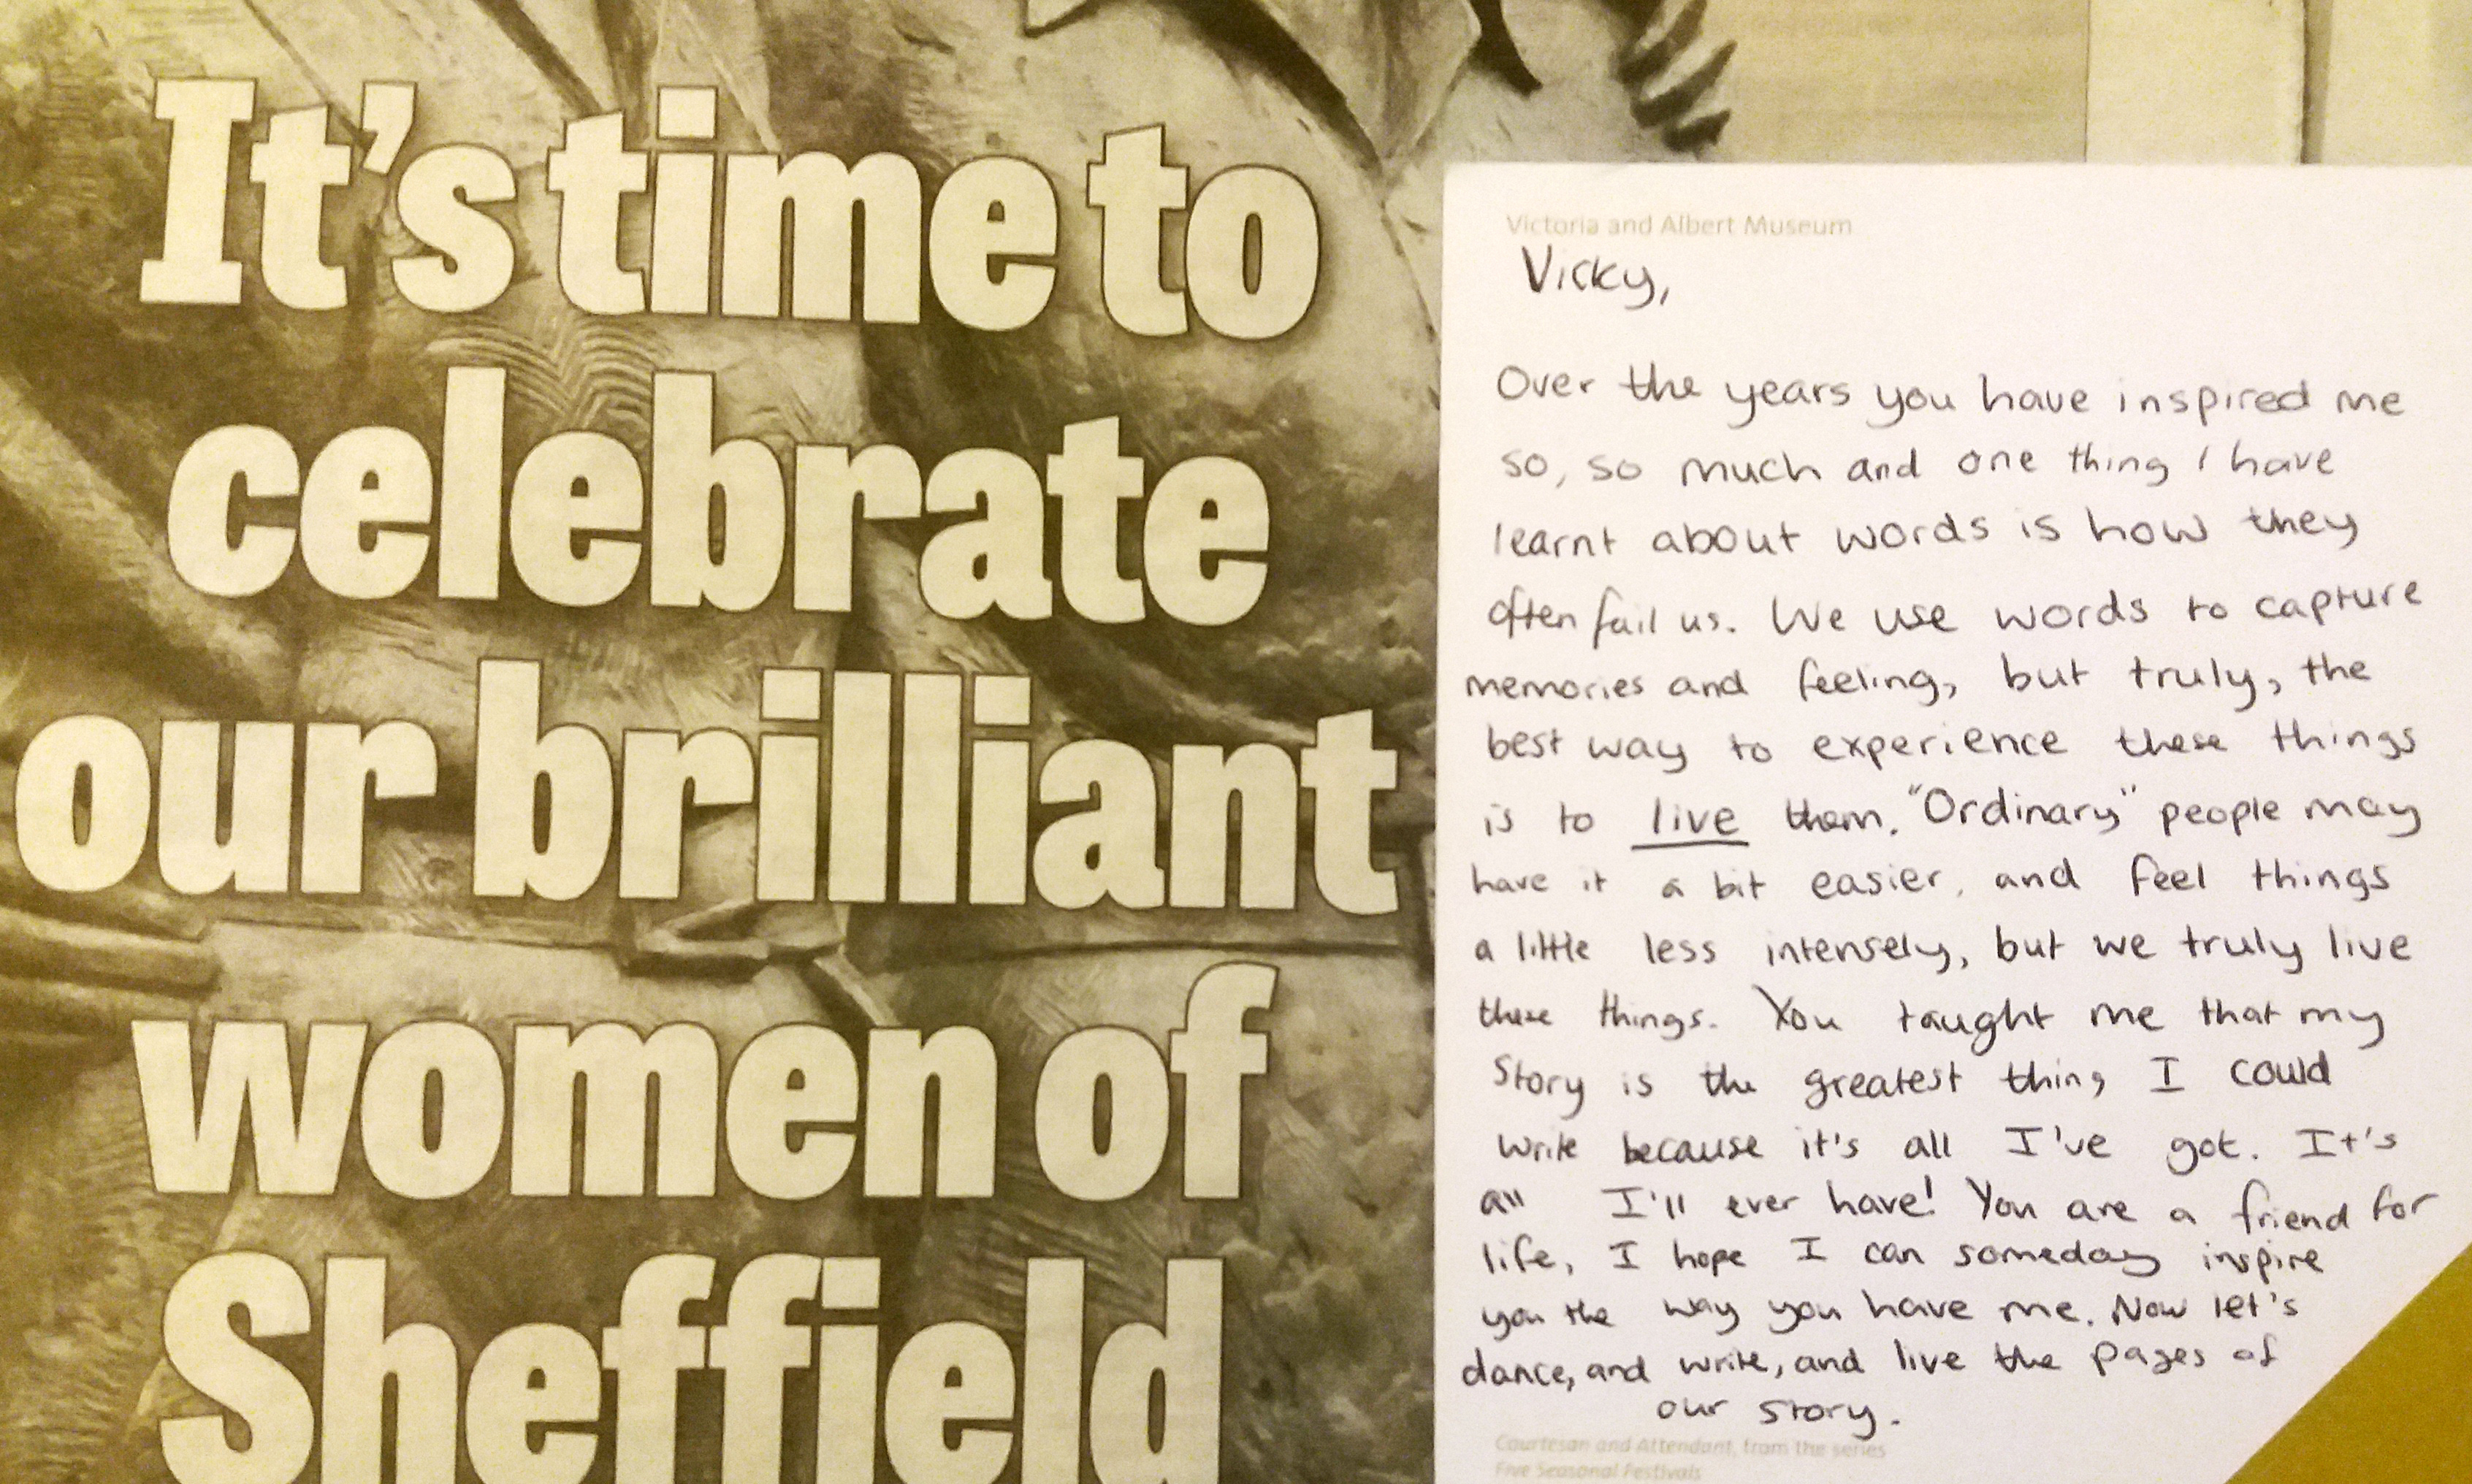 It's time to
celebrate
our brilliant
women of
Sheffield
Victoria and Albert Museum
Vicky,
Over the years you have inspired me
so, so much and one thing I have
learnt about words is how they
often fail us. We use words to capture
memories and feeling, but truly, the
best way to experience these things
is to live them. "Ordinary" people may
have it a bit easier, and feel things
a little less intensely, but we truly live
these things. You taught me that my
story is the greatest thing I could
write because it's all I've got. It's
all I'll ever have! You are a friend for
life, I hope I can someday inspire
you the way you have me. Now let's
dance, and write, and live the pages of
our story.
Courtesan and Attendant, from the series
Five Seasonal Festivals